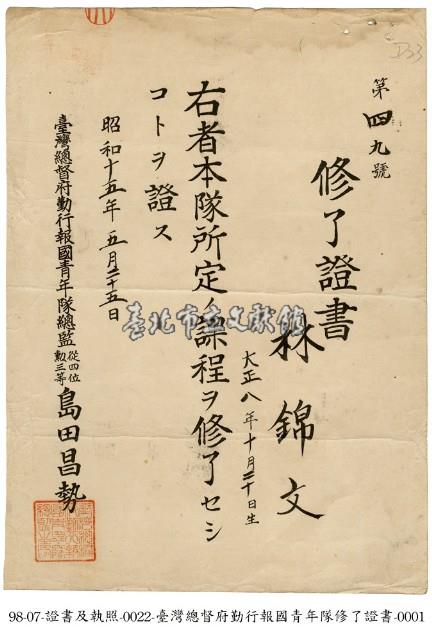 第四九號
修了證書
林錦文
大正八年十月二十日生
右者本隊所定ノ課程ヲ修了セシ
コトヲ證ス
昭和十五年五月二十五日
臺灣總督府勤行報國青年隊總監
從四位
勲三等
島田昌勢
臺北市立文獻館
D33
98-07-證書及執照-0022-臺灣總督府勤行報國青年隊修了證書-0001